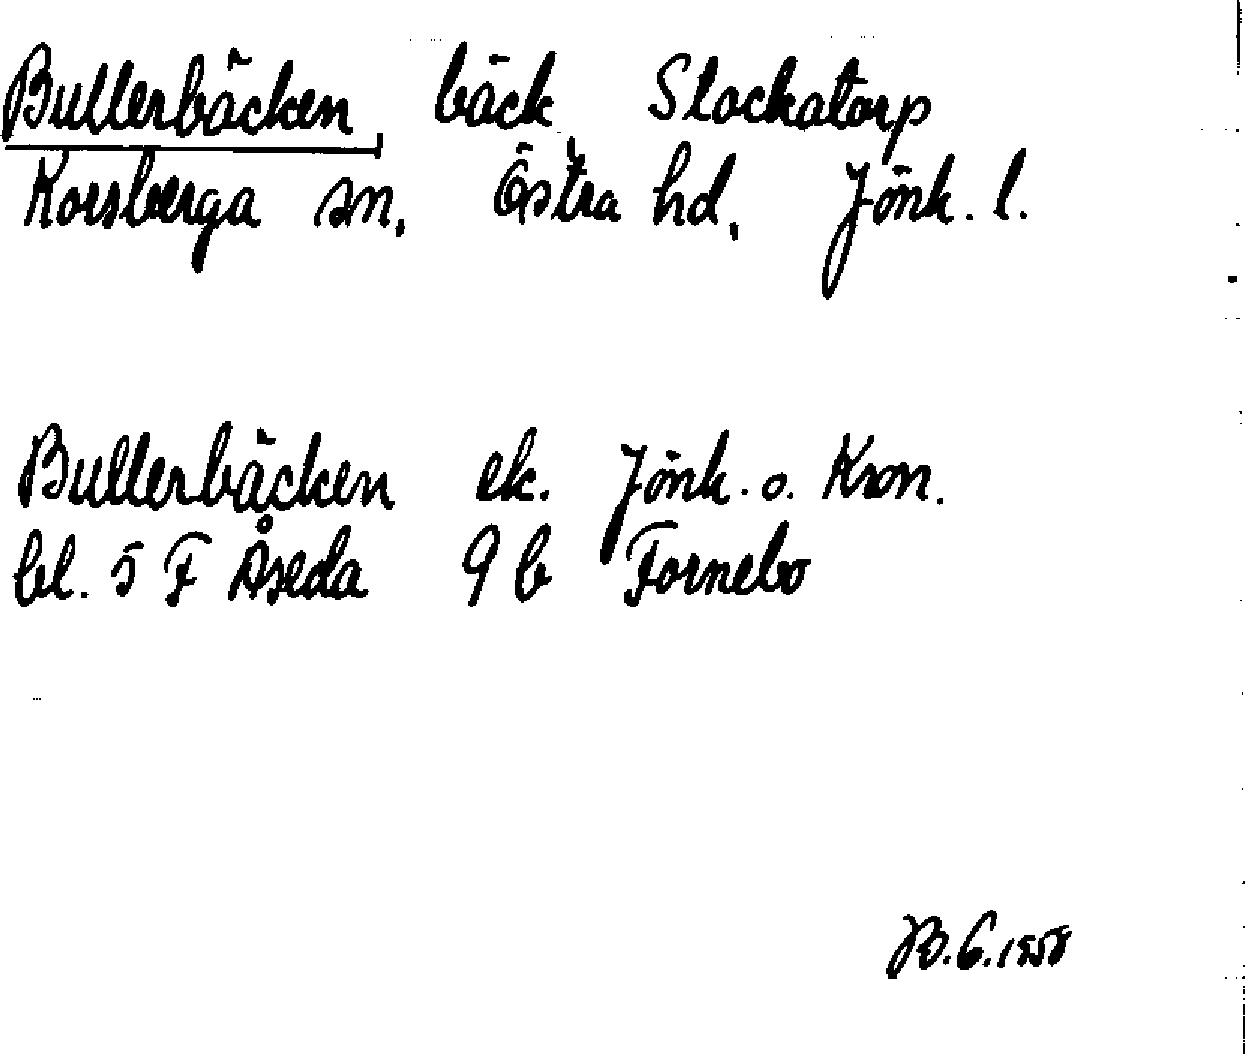 Bullerbäcken, bäck, Slockatorp
Korsberga sn, Östra hd, Jönk. l.
Bullerbäcken ek. Jönk. o. Kron.
bl. 5 F Åseda 9 b Fornebo